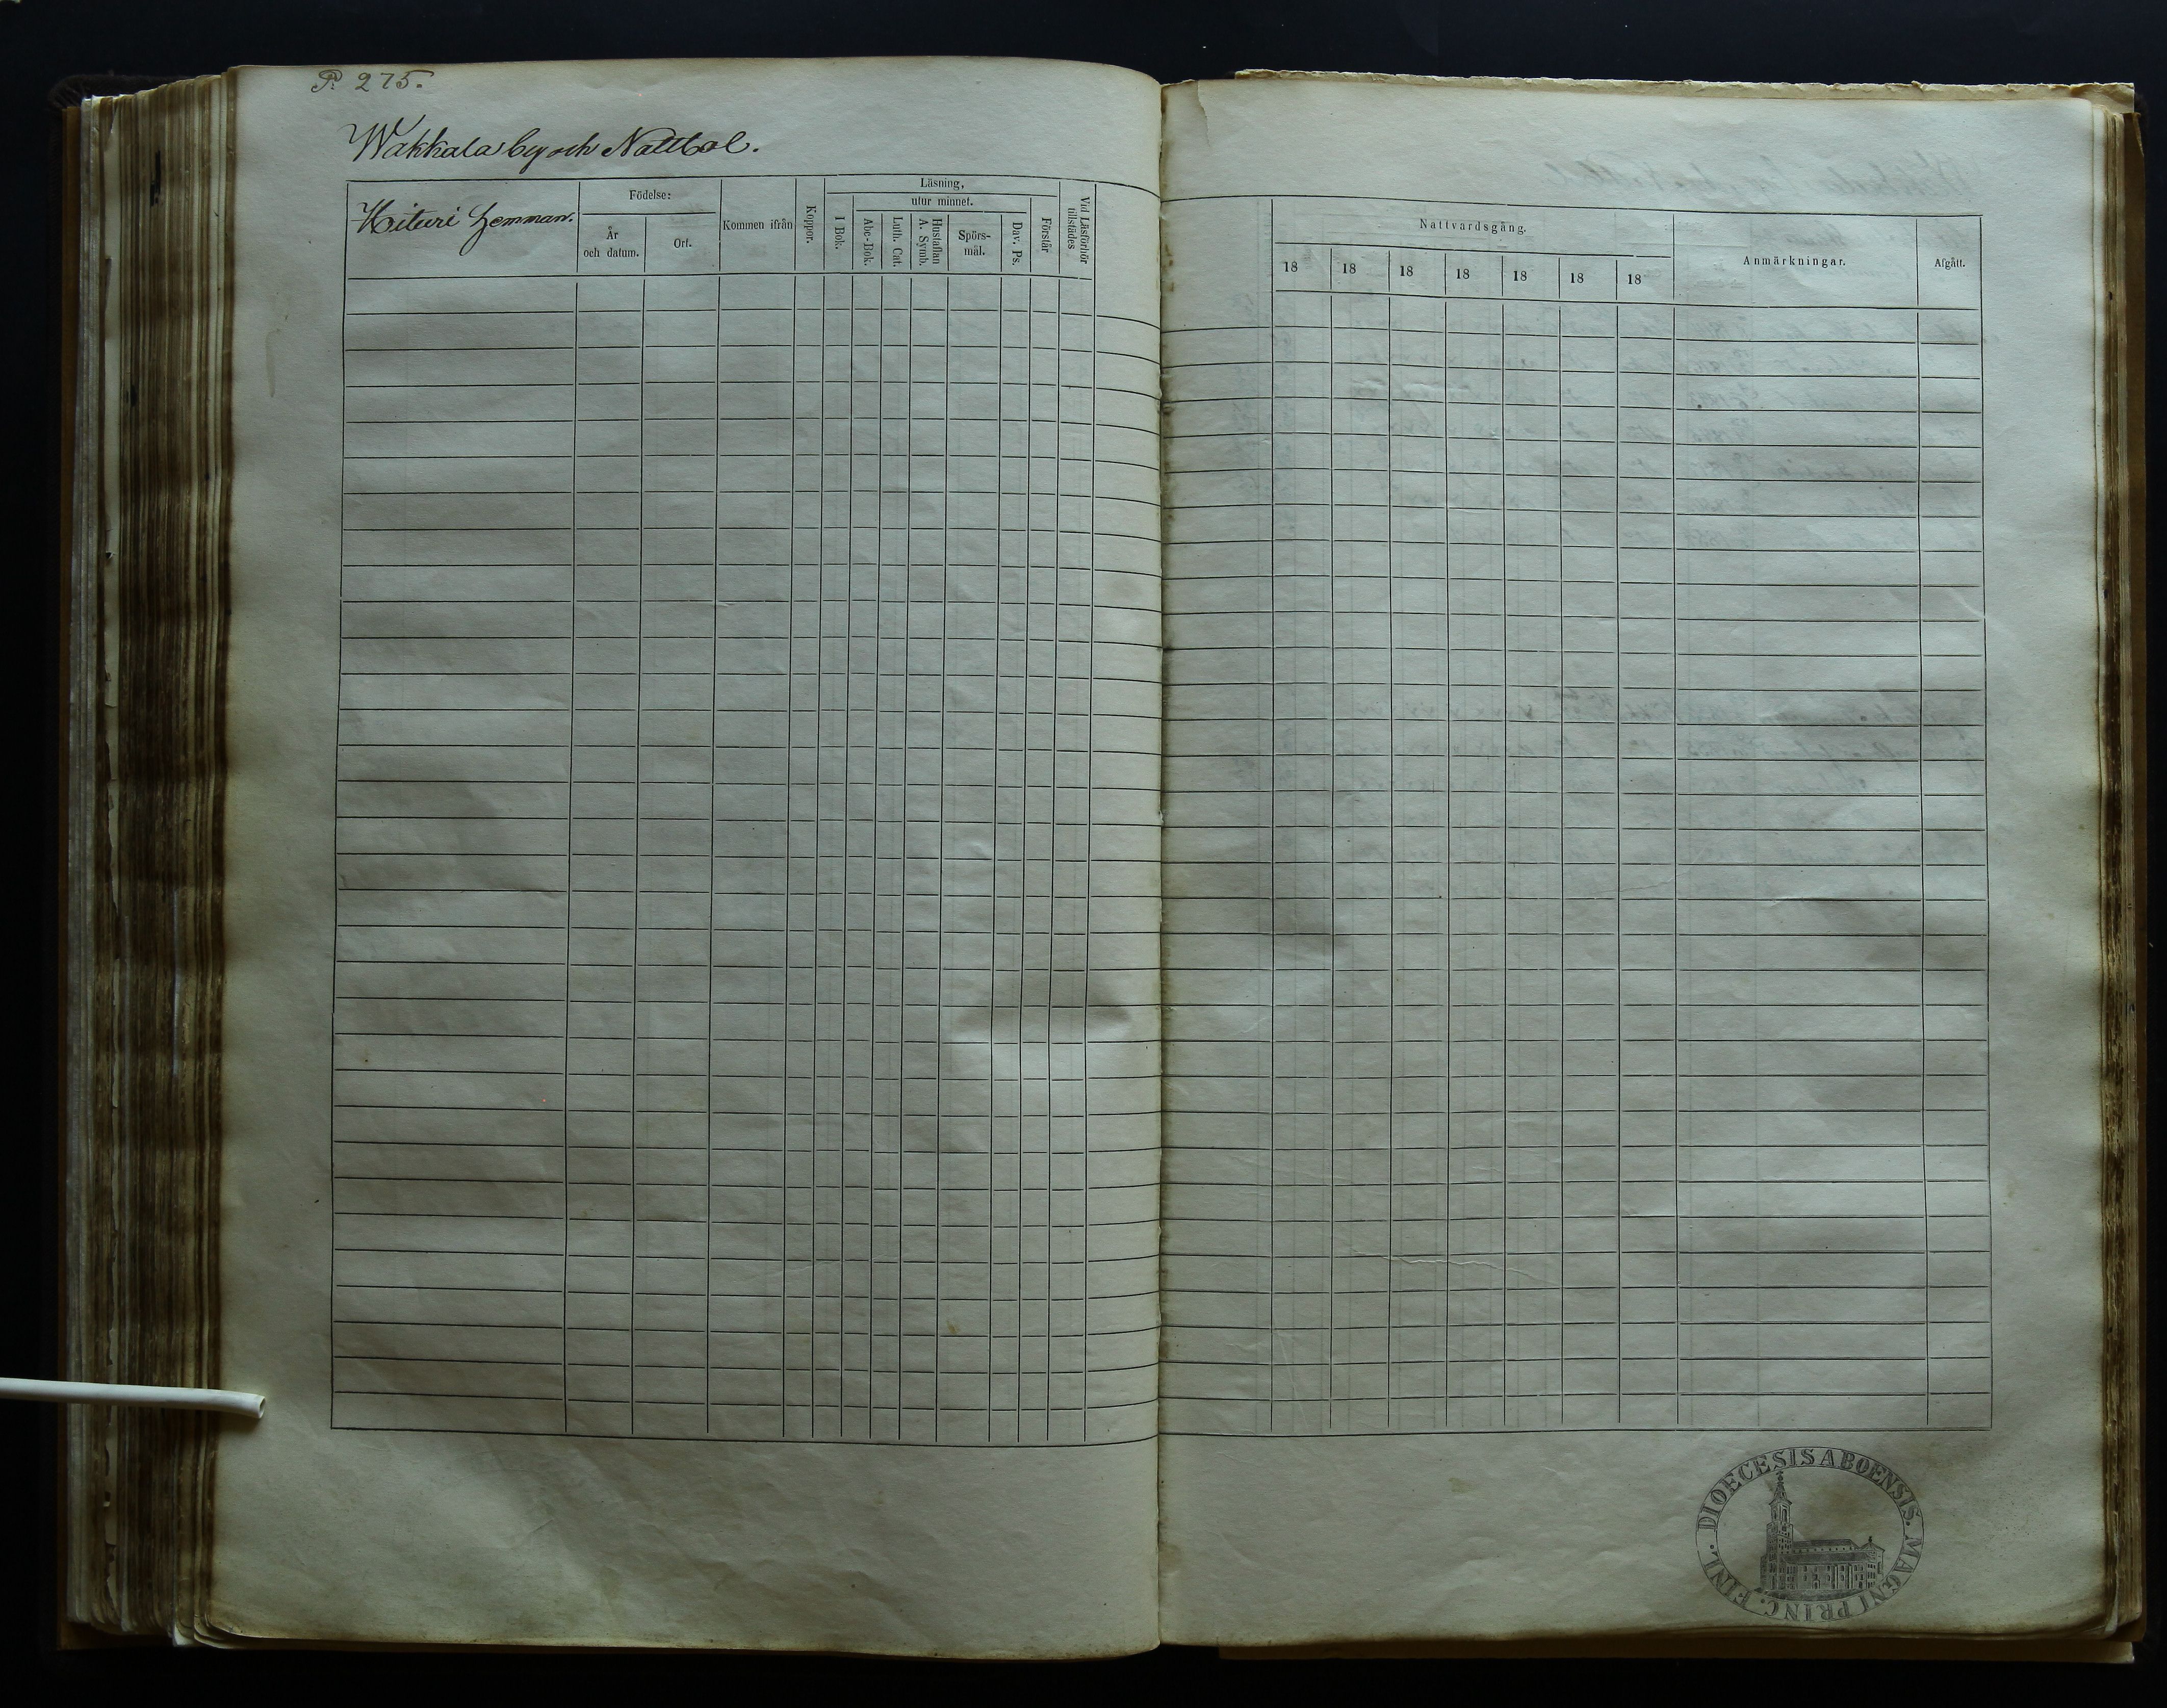 P. 275.
Wakkala by och Nattbol.
Hituri hemman.
Födelse:
År
och datum.
Ort.
Kommen ifrån
Koppor.
Läsning,
utur minnet.
I Bok.
Abc-Bok.
Luth. Cat.
Hustaflan
A. Symb.
Spörs-
mål.
Dav. Ps.
Förstår
Vid Läsförhör
tillstädes
Nattvardsgång.
18 18 18 18 18 18 18
Anmärkningar.
Afgått.
DIOECESIS ABOENSIS. MAGNI PRINC. FINL.